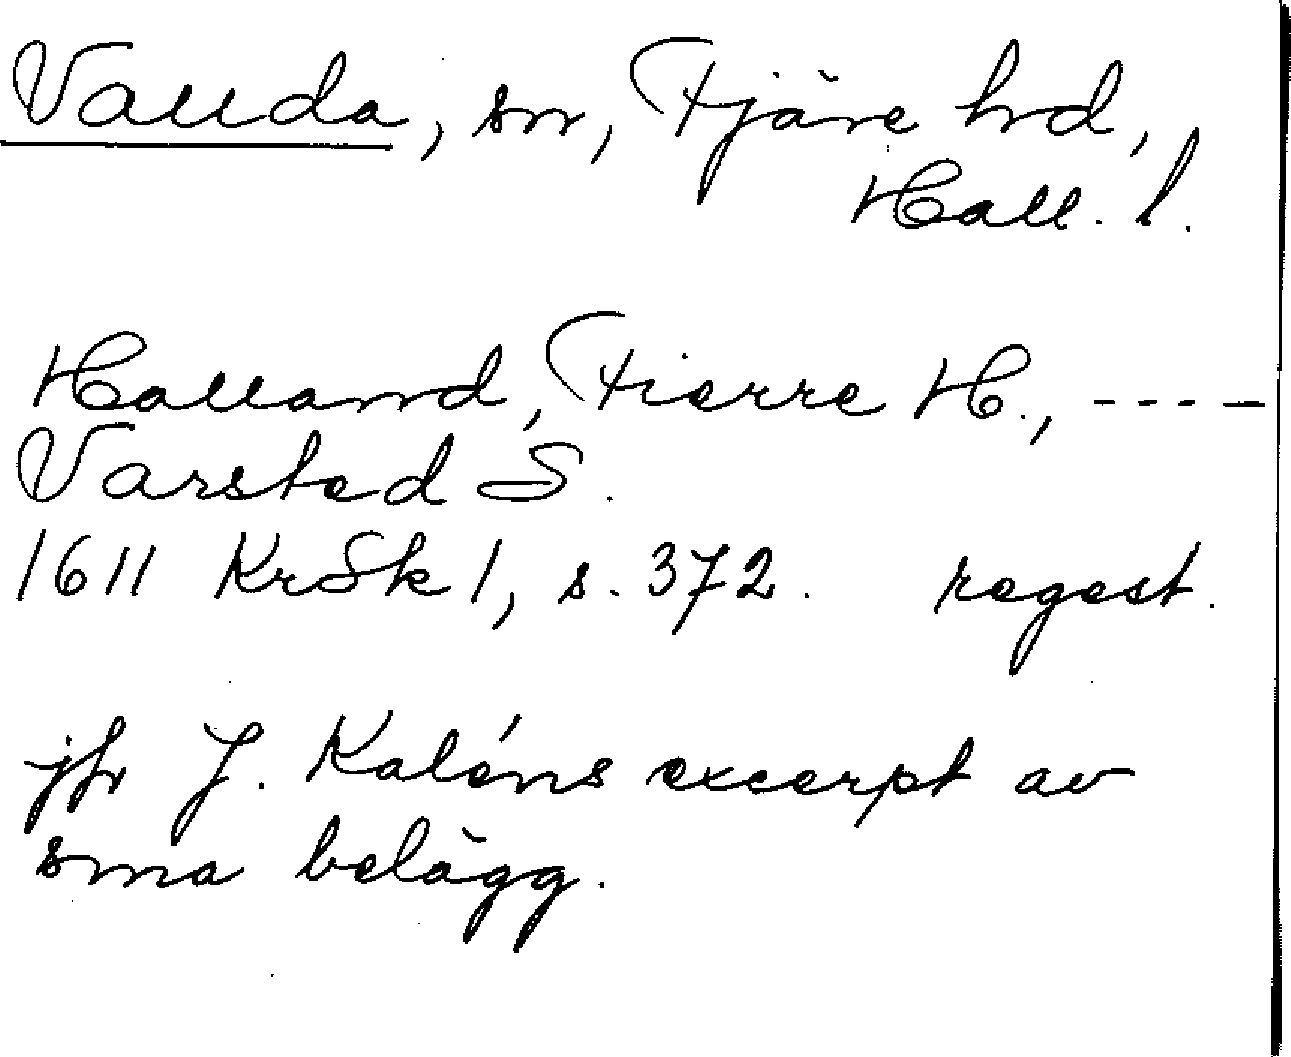 Vallda, sn, Fjäre hd,
Hall. l.
Halland, Fierre H., ----
Varsted S.
1611 KrSk 1, s. 372. regest.
jfr J. Kaléns excerpt av
sma belägg.